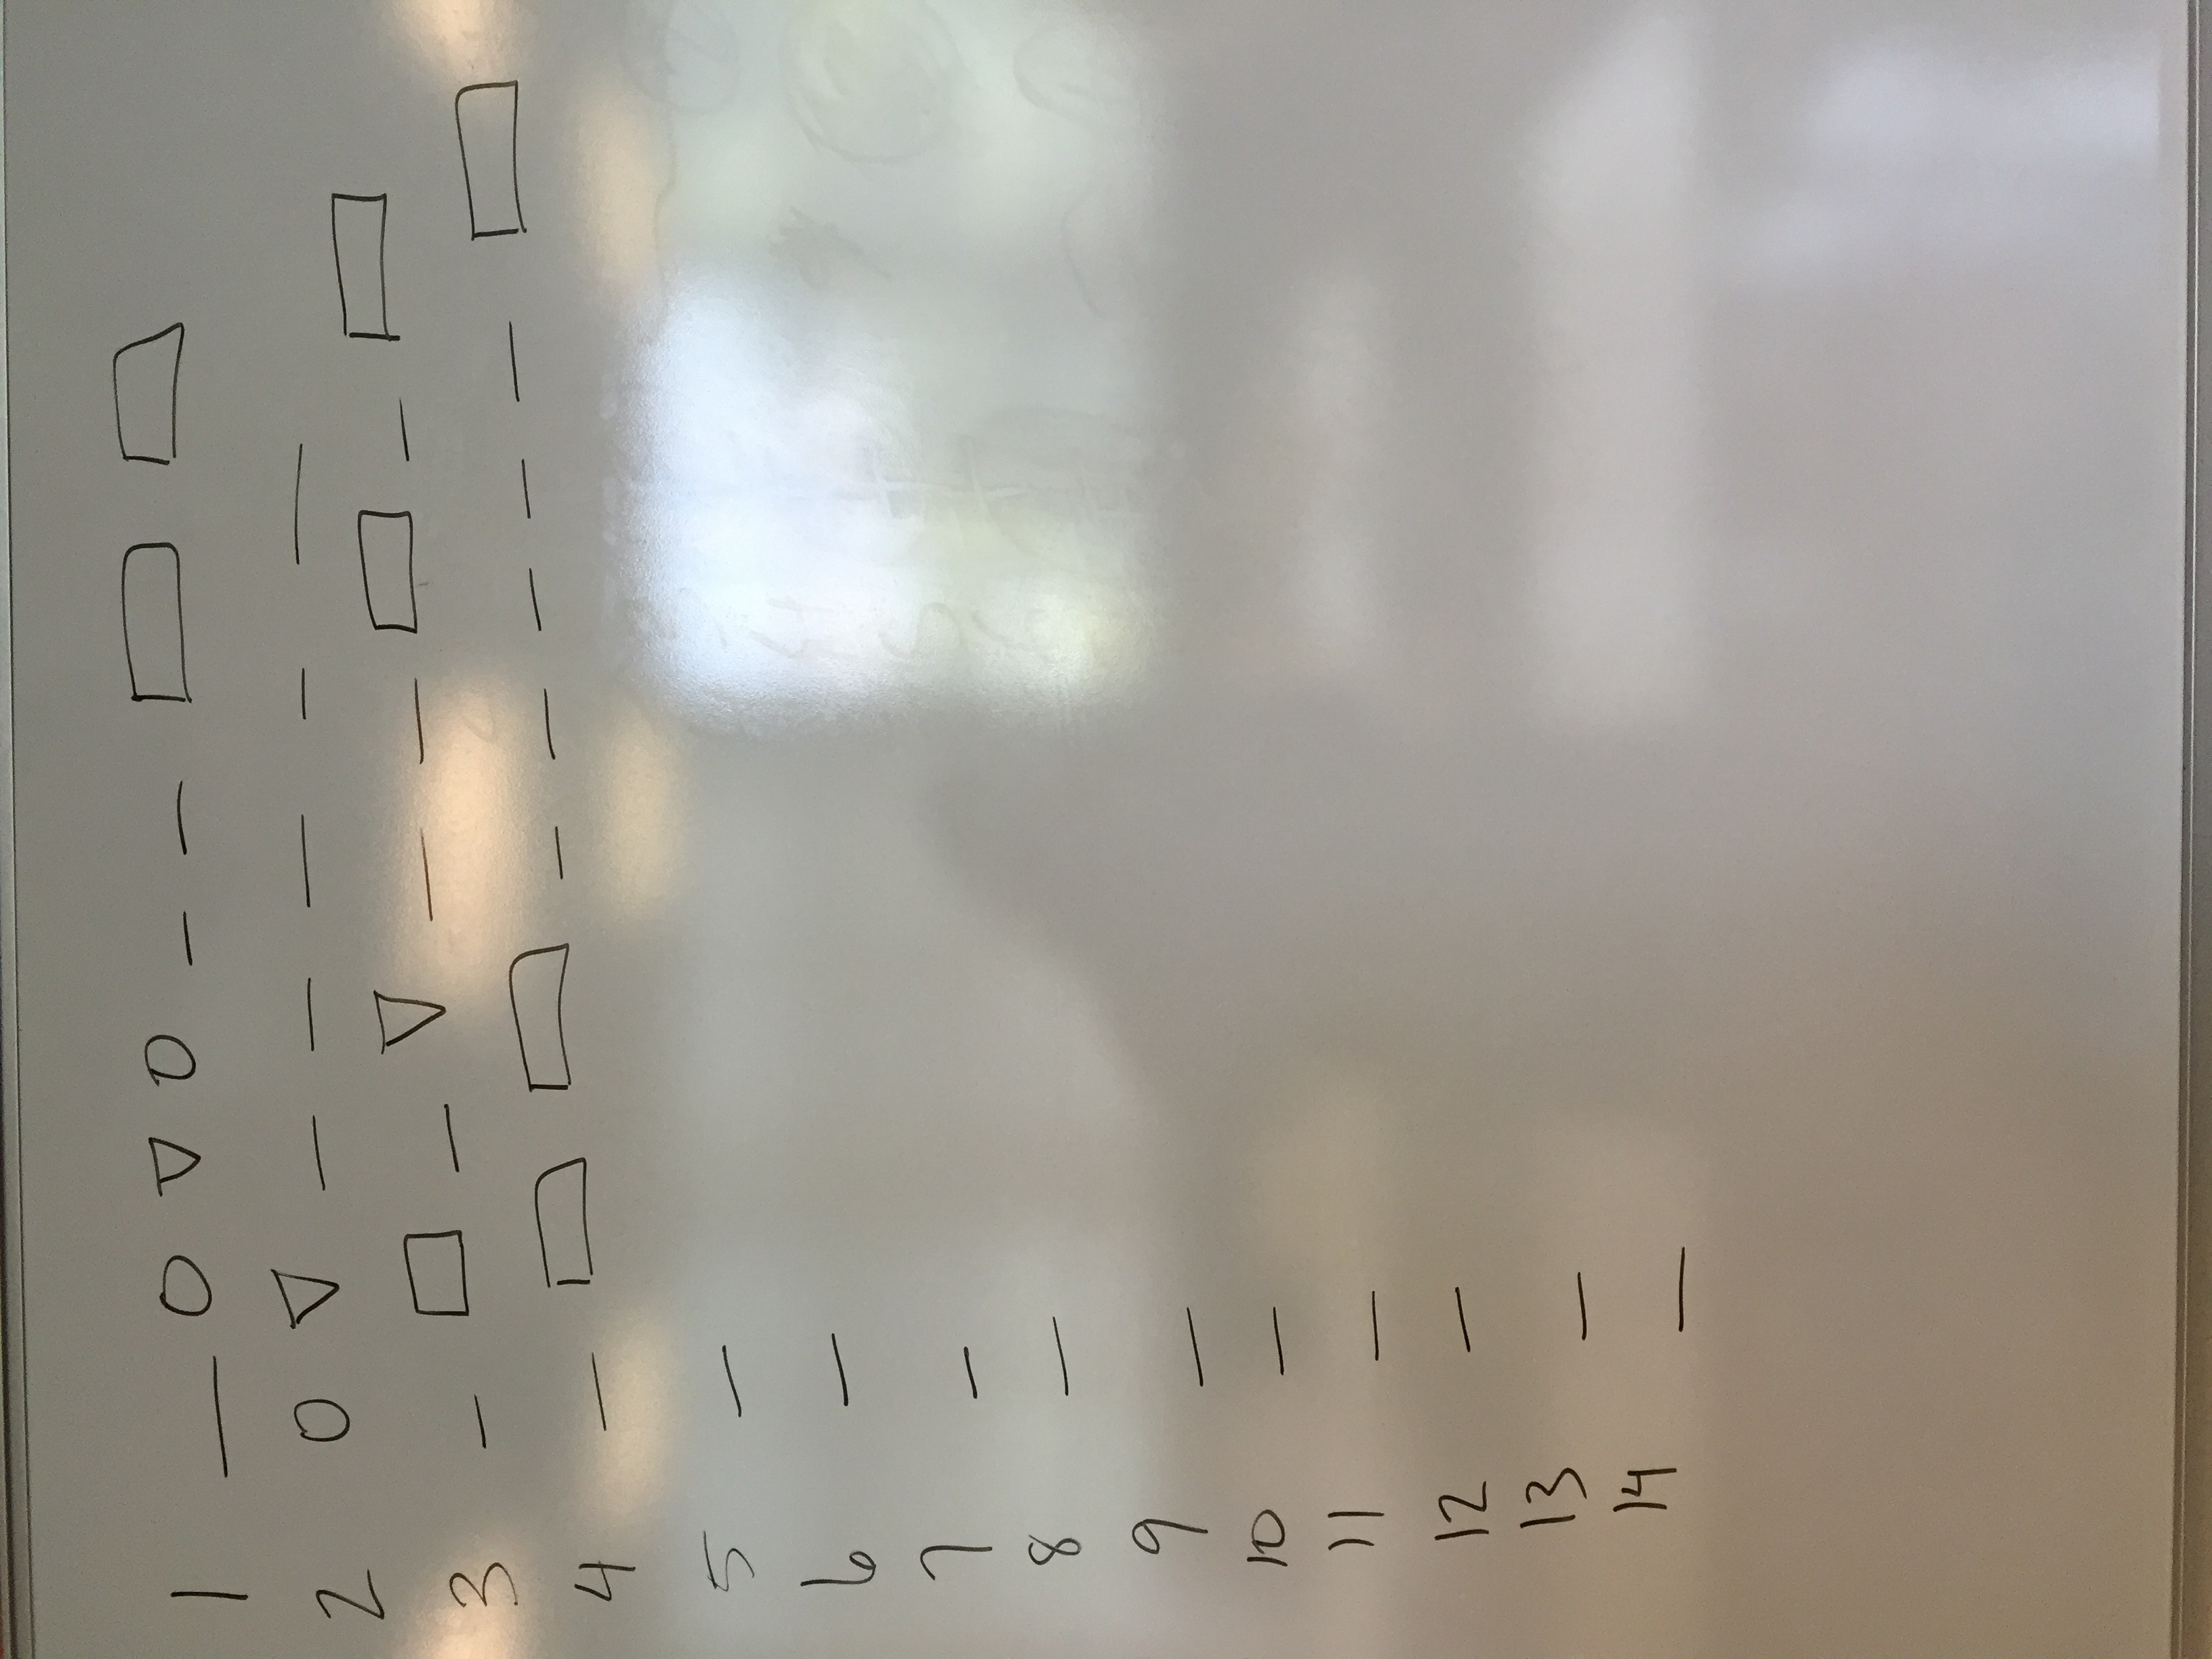 1 __ O ▽ O _ _ ▭ ▭
2 O ▽ _ _ _ _ _
3 _ □ _ ▽ _ _ ▭ _ ▭
4 _ ▭ ▭ _ _ _ _ _ ▭
5 _
6 _
7 _
8 _
9 _
10 _
11 _
12 _
13 _
14 _